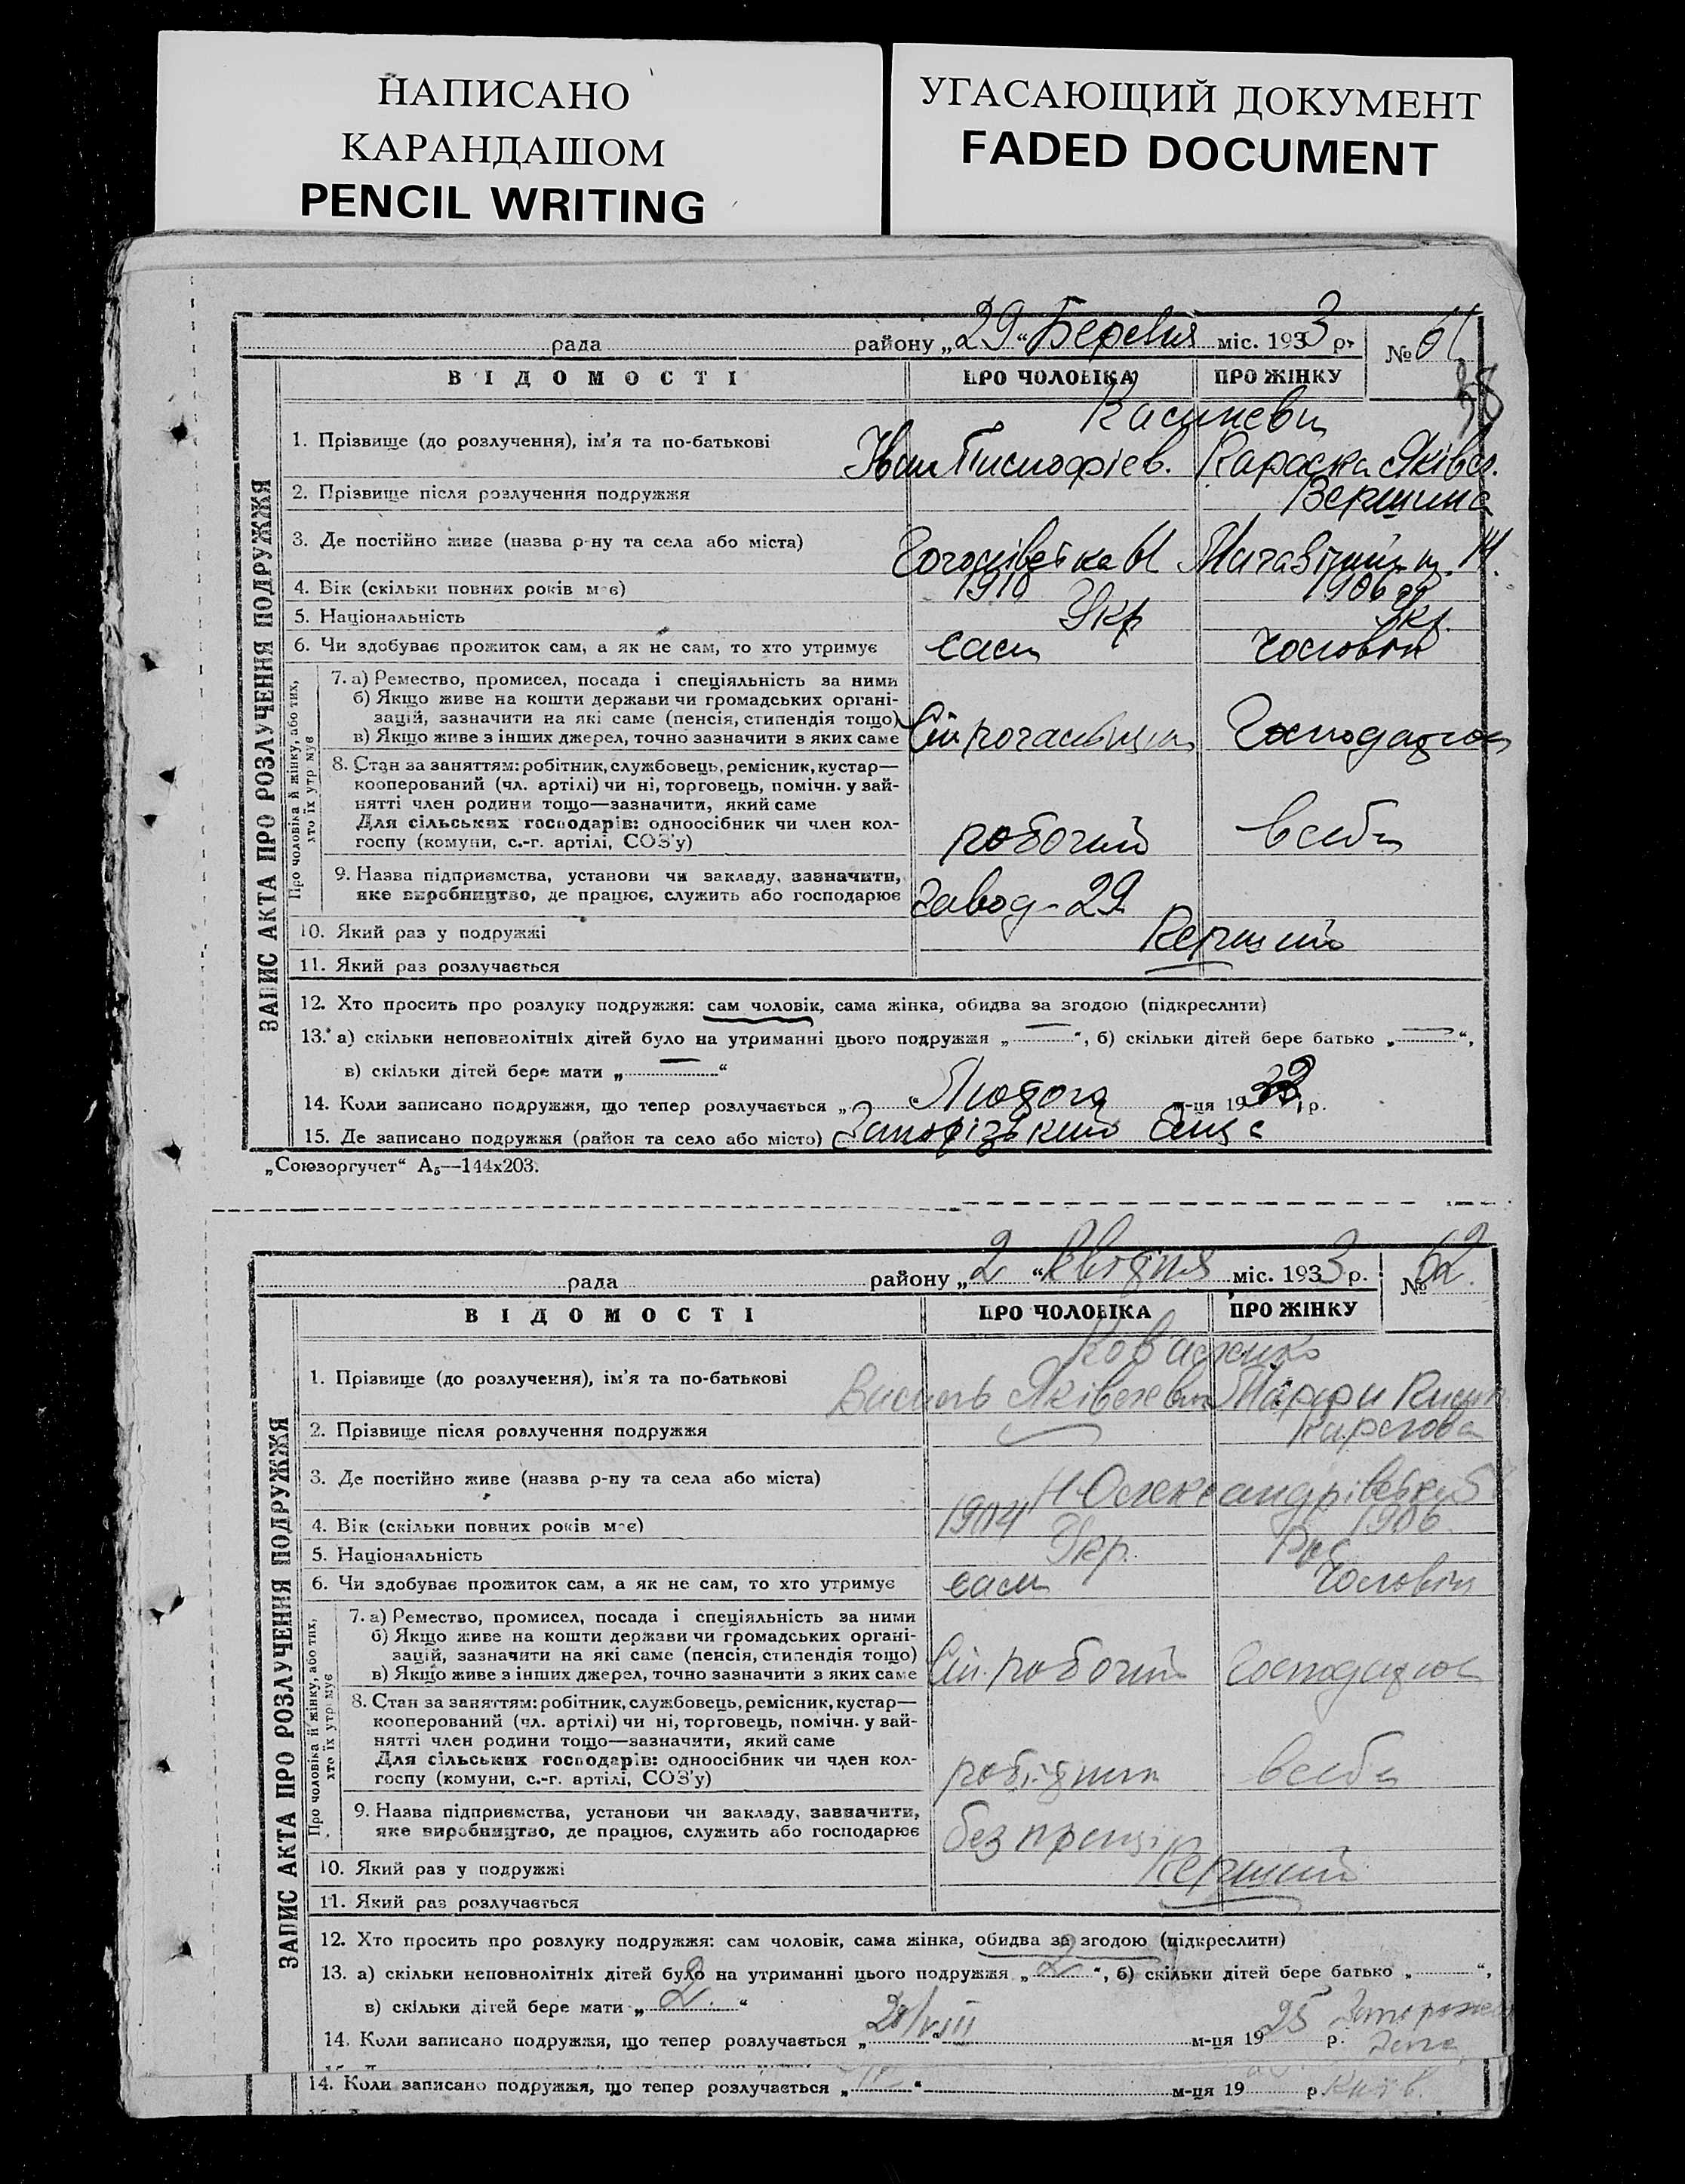 НАПИСАНО
КАРАНДАШОМ
PENCIL WRITING
УГАСАЮЩИЙ ДОКУМЕНТ
FADED DOCUMENT
рада району „29“ Березня міс. 1933 р. № 61
38
ВІДОМОСТІ ПРО ЧОЛОВІКА ПРО ЖІНКУ
ЗАПИС АКТА ПРО РОЗЛУЧЕННЯ ПОДРУЖЖЯ
1. Прізвище (до розлучення), ім'я та по-батькові
Іван Параска Яківл.
2. Прізвище після розлучення подружжя
3. Де постійно живе (назва р-ну та села або міста)
4. Вік (скільки повних років має) 1910 1906
5. Національність Укр Укр.
6. Чи здобуває прожиток сам, а як не сам, то хто утримує сам чоловік
Про чоловіка й жінку, або тих, хто їх утримує
7. а) Ремество, промисел, посада і спеціяльність за ними
б) Якщо живе на кошти держави чи громадських органі-
зацій, зазначити на які саме (пенсія, стипендія тощо)
в) Якщо живе з інших джерел, точно зазначити з яких саме
8. Стан за заняттям: робітник, службовець, ремісник, кустар—
кооперований (чл. артілі) чи ні, торговець, помічн. у зай-
нятті член родини тощо—зазначити, який саме
Для сільських господарів: одноосібник чи член кол-
госпу (комуни, с.-г. артілі, СОЗ'у)
робочий
9. Назва підприємства, установи чи закладу, зазначити,
яке виробництво, де працює, служить або господарює
завод-29
10. Який раз у подружжі
Перший
11. Який раз розлучається
12. Хто просить про розлуку подружжя: сам чоловік, сама жінка, обидва за згодою (підкреслити)
13. а) скільки неповнолітніх дітей було на утриманні цього подружжя „—“, б) скільки дітей бере батько „—“,
в) скільки дітей бере мати „—“
14. Коли записано подружжя, що тепер розлучається „ Лютого м-ця 19 р.
15. Де записано подружжя (район та село або місто) Запорізький
„Союзоргучет“ А₅—144х203.
рада району „2“ Квітня міс. 1933 р. № 62.
ВІДОМОСТІ ПРО ЧОЛОВІКА ПРО ЖІНКУ
ЗАПИС АКТА ПРО РОЗЛУЧЕННЯ ПОДРУЖЖЯ
1. Прізвище (до розлучення), ім'я та по-батькові
Василь Яківлевич
2. Прізвище після розлучення подружжя
3. Де постійно живе (назва р-ну та села або міста)
4. Вік (скільки повних років має) 1904 1906
5. Національність Укр. Рос
6. Чи здобуває прожиток сам, а як не сам, то хто утримує сам чоловік
Про чоловіка й жінку, або тих, хто їх утримує
7. а) Ремество, промисел, посада і спеціяльність за ними
б) Якщо живе на кошти держави чи громадських органі-
зацій, зазначити на які саме (пенсія, стипендія тощо)
в) Якщо живе з інших джерел, точно зазначити з яких саме
робочий
8. Стан за заняттям: робітник, службовець, ремісник, кустар—
кооперований (чл. артілі) чи ні, торговець, помічн. у зай-
нятті член родини тощо—зазначити, який саме
Для сільських господарів: одноосібник чи член кол-
госпу (комуни, с.-г. артілі, СОЗ'у)
робітник
9. Назва підприємства, установи чи закладу, зазначити,
яке виробництво, де працює, служить або господарює
без праці
10. Який раз у подружжі
Перший
11. Який раз розлучається
12. Хто просить про розлуку подружжя: сам чоловік, сама жінка, обидва за згодою (підкреслити)
13. а) скільки неповнолітніх дітей було на утриманні цього подружжя „2“, б) скільки дітей бере батько „ “,
в) скільки дітей бере мати „2.“
14. Коли записано подружжя, що тепер розлучається „20/VIII“ м-ця 1925 р.
14. Коли записано подружжя, що тепер розлучається „ “ м-ця 19 р